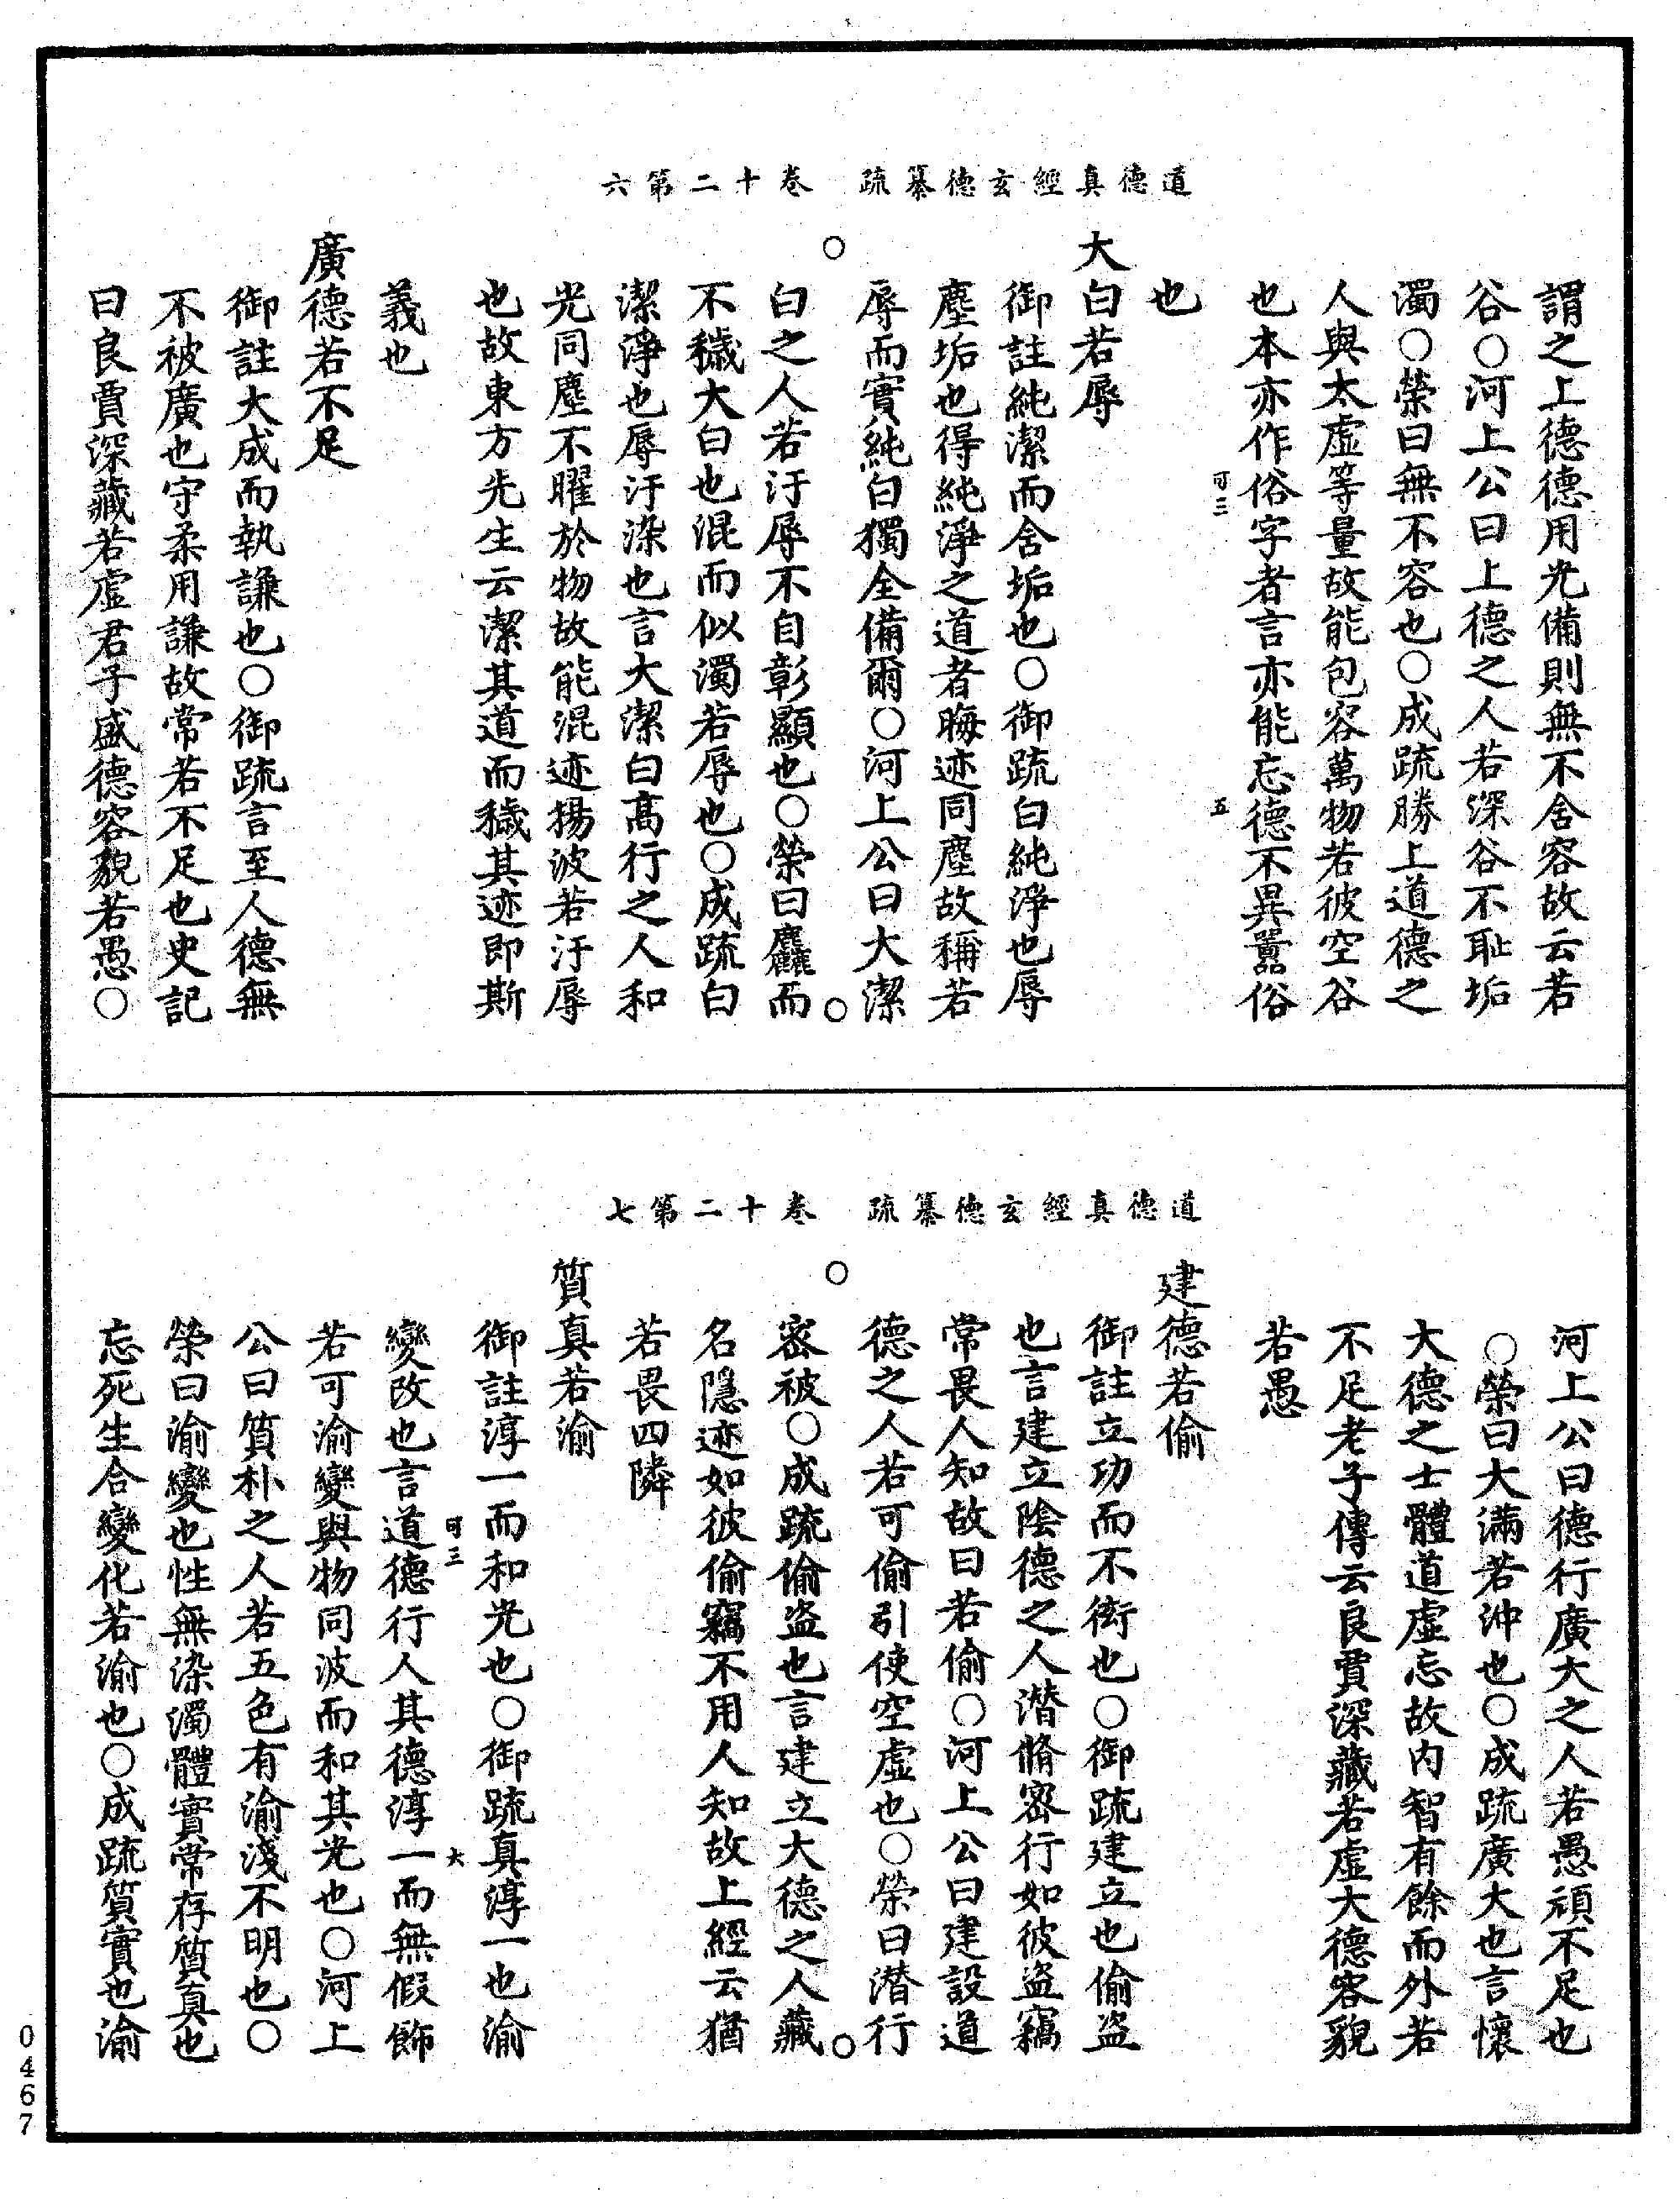 道德真經玄德纂疏　卷十二第六
謂之上德德用光備則無不舍容故云若
谷○河上公曰上德之人若深谷不恥垢
濁○榮曰無不容也○成疏勝上道德之
人與太虛等量故能包容萬物若彼空谷
也本亦作俗字者言亦能忘德不異囂俗
可三　五
也
大白若辱
御註純潔而舍垢也○御疏白純淨也辱
塵垢也得純淨之道者晦迹同塵故稱若
辱而實純白獨全備爾○河上公曰大潔
白之人若汙辱不自彰顯也○榮曰麤而
不穢大白也混而似濁若辱也○成疏白
潔淨也辱汙染也言大潔白高行之人和
光同塵不曜於物故能混迹揚波若汙辱
也故東方先生云潔其道而穢其迹即斯
義也
廣德若不足
御註大成而執謙也○御疏言至人德無
不被廣也守柔用謙故常若不足也史記
曰良賈深藏若虛君子盛德容貌若愚○
道德真經玄德纂疏　卷十二第七
河上公曰德行廣大之人若愚頑不足也
○榮曰大滿若沖也○成疏廣大也言懷
大德之士體道虛忘故內智有餘而外若
不足老子傳云良賈深藏若虛大德容貌
若愚
建德若偷
御註立功而不衒也○御疏建立也偷盜
也言建立陰德之人潛脩密行如彼盜竊
常畏人知故曰若偷○河上公曰建設道
德之人若可偷引使空虛也○榮曰潛行
密被○成疏偷盜也言建立大德之人藏
名隱迹如彼偷竊不用人知故上經云猶
若畏四隣
質真若渝
御註淳一而和光也○御疏真淳一也渝
可三　六
變改也言道德行人其德淳一而無假飾
若可渝變與物同波而和其光也○河上
公曰質朴之人若五色有渝淺不明也○
榮曰渝變也性無染濁體實常存質真也
忘死生合變化若渝也○成疏質實也渝
0467